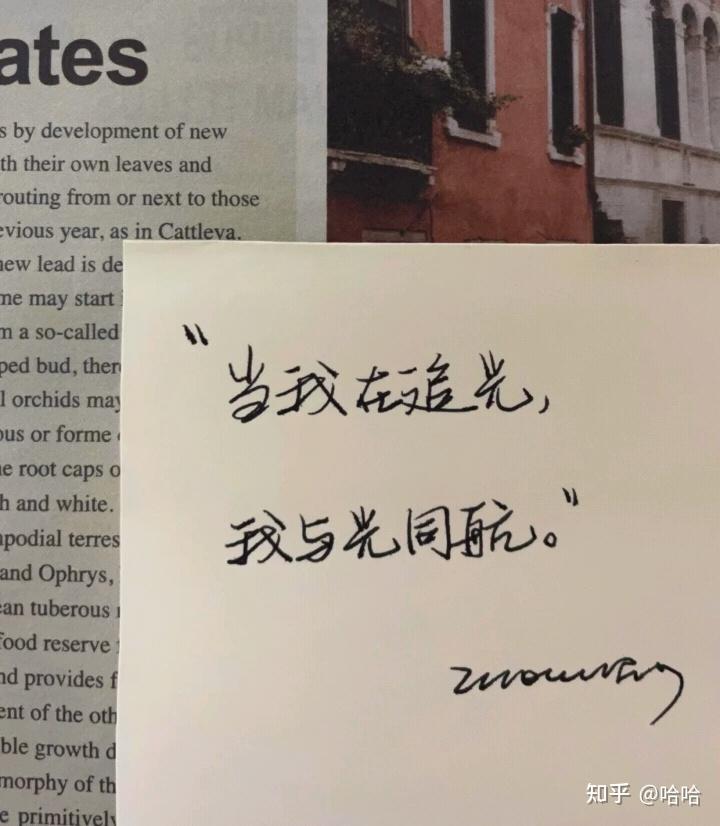 ates
s by development of new
th their own leaves and
routing from or next to those
evious year, as in Cattleya.
new lead is de
me may start
m a so-called
ped bud, ther
l orchids may
ous or forme
e root caps o
h and white.
podial terres
and Ophrys,
an tuberous
food reserve
nd provides f
ent of the oth
ble growth d
morphy of th
e primitively
“当我在追光,
我与光同航。”
知乎 @哈哈